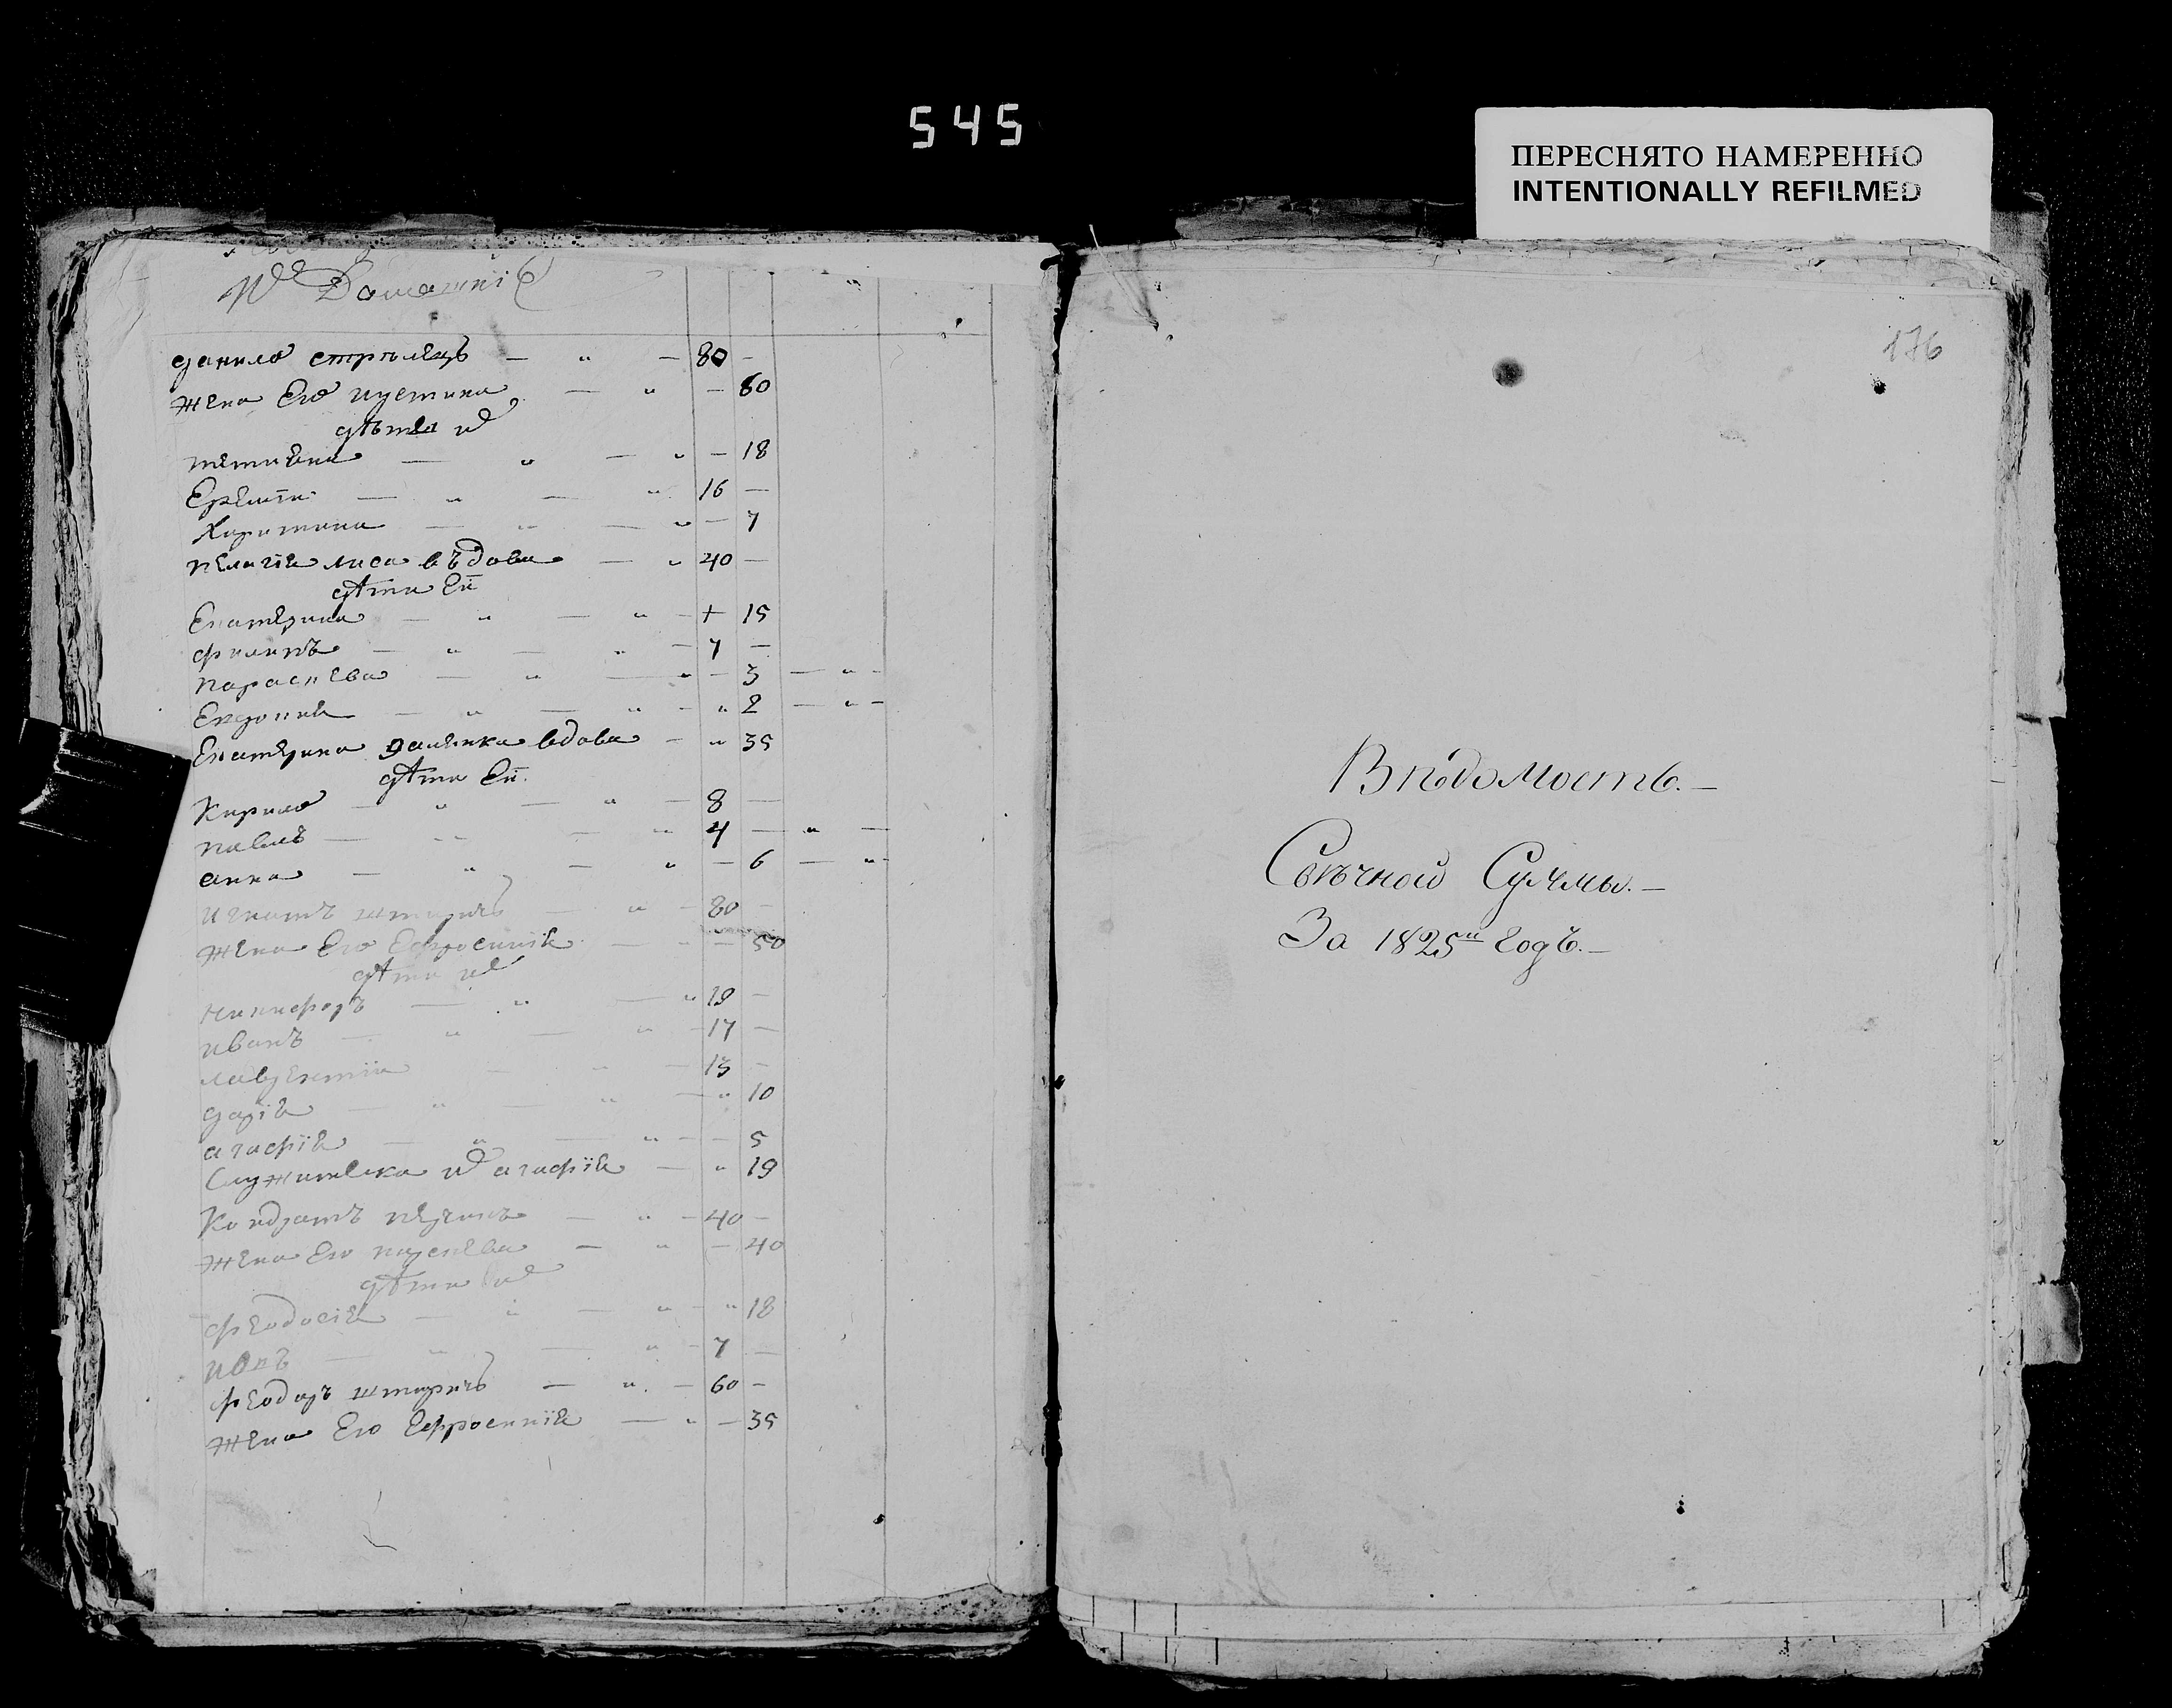 545
ПЕРЕСНЯТО НАМЕРЕННО
INTENTIONALLY REFILMED
данило стрѣлецъ — " — 80 —
жена Его иустина — " — 60
дѣти их
тетиана — " — " — 18
Еремїи — " — " 16 —
Харитина — " — " — 7
пелагїя лиса въдова — " 40 —
дѣти Еи
Екатерина — " — " — + 15
филипъ — " — " — 7 —
параскева — " — " — 3 — " —
Евдокия — " — " — " 2 — " —
Екатерина вдова — " 35
дѣти Еи.
Кирило — " — " — 8 —
павелъ — " — " 4 — " —
анна — " — " — 6 — " —
игнатъ — " — 80 —
жена Его Ефросинїя — " — 50
дѣти их
никифоръ — " — " 19 —
иванъ — " — " — 17 —
лаврентїи — " — 13 —
дарїя — " — " — " 10
агафїя — " — " — — 5
Служителка их агафїя — " 19
Кондратъ — " — 40 —
жена Его параскева — " — 40
дѣти их
феодосїя — " — " — " 18
— " — " — 7 —
феодоръ — " — 60 —
жена Его Ефросинїя — " — 35
176
Вѣдомость. —
Свѣчной Суммы. —
За 1825й годъ. —